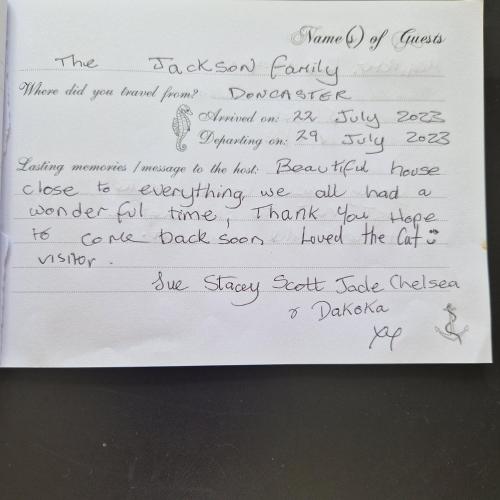 Name(s) of Guests
The Jackson Family
Where did you travel from? DONCASTER
Arrived on: 22 July 2023
Departing on: 29 July 2023
Lasting memories / message to the host: Beautiful house
close to everything, we all had a
wonderful time, Thank You Hope
to come back soon Loved the Cat
visitor.
Sue Stacey Scott Jade Chelsea
& Dakoka
xx